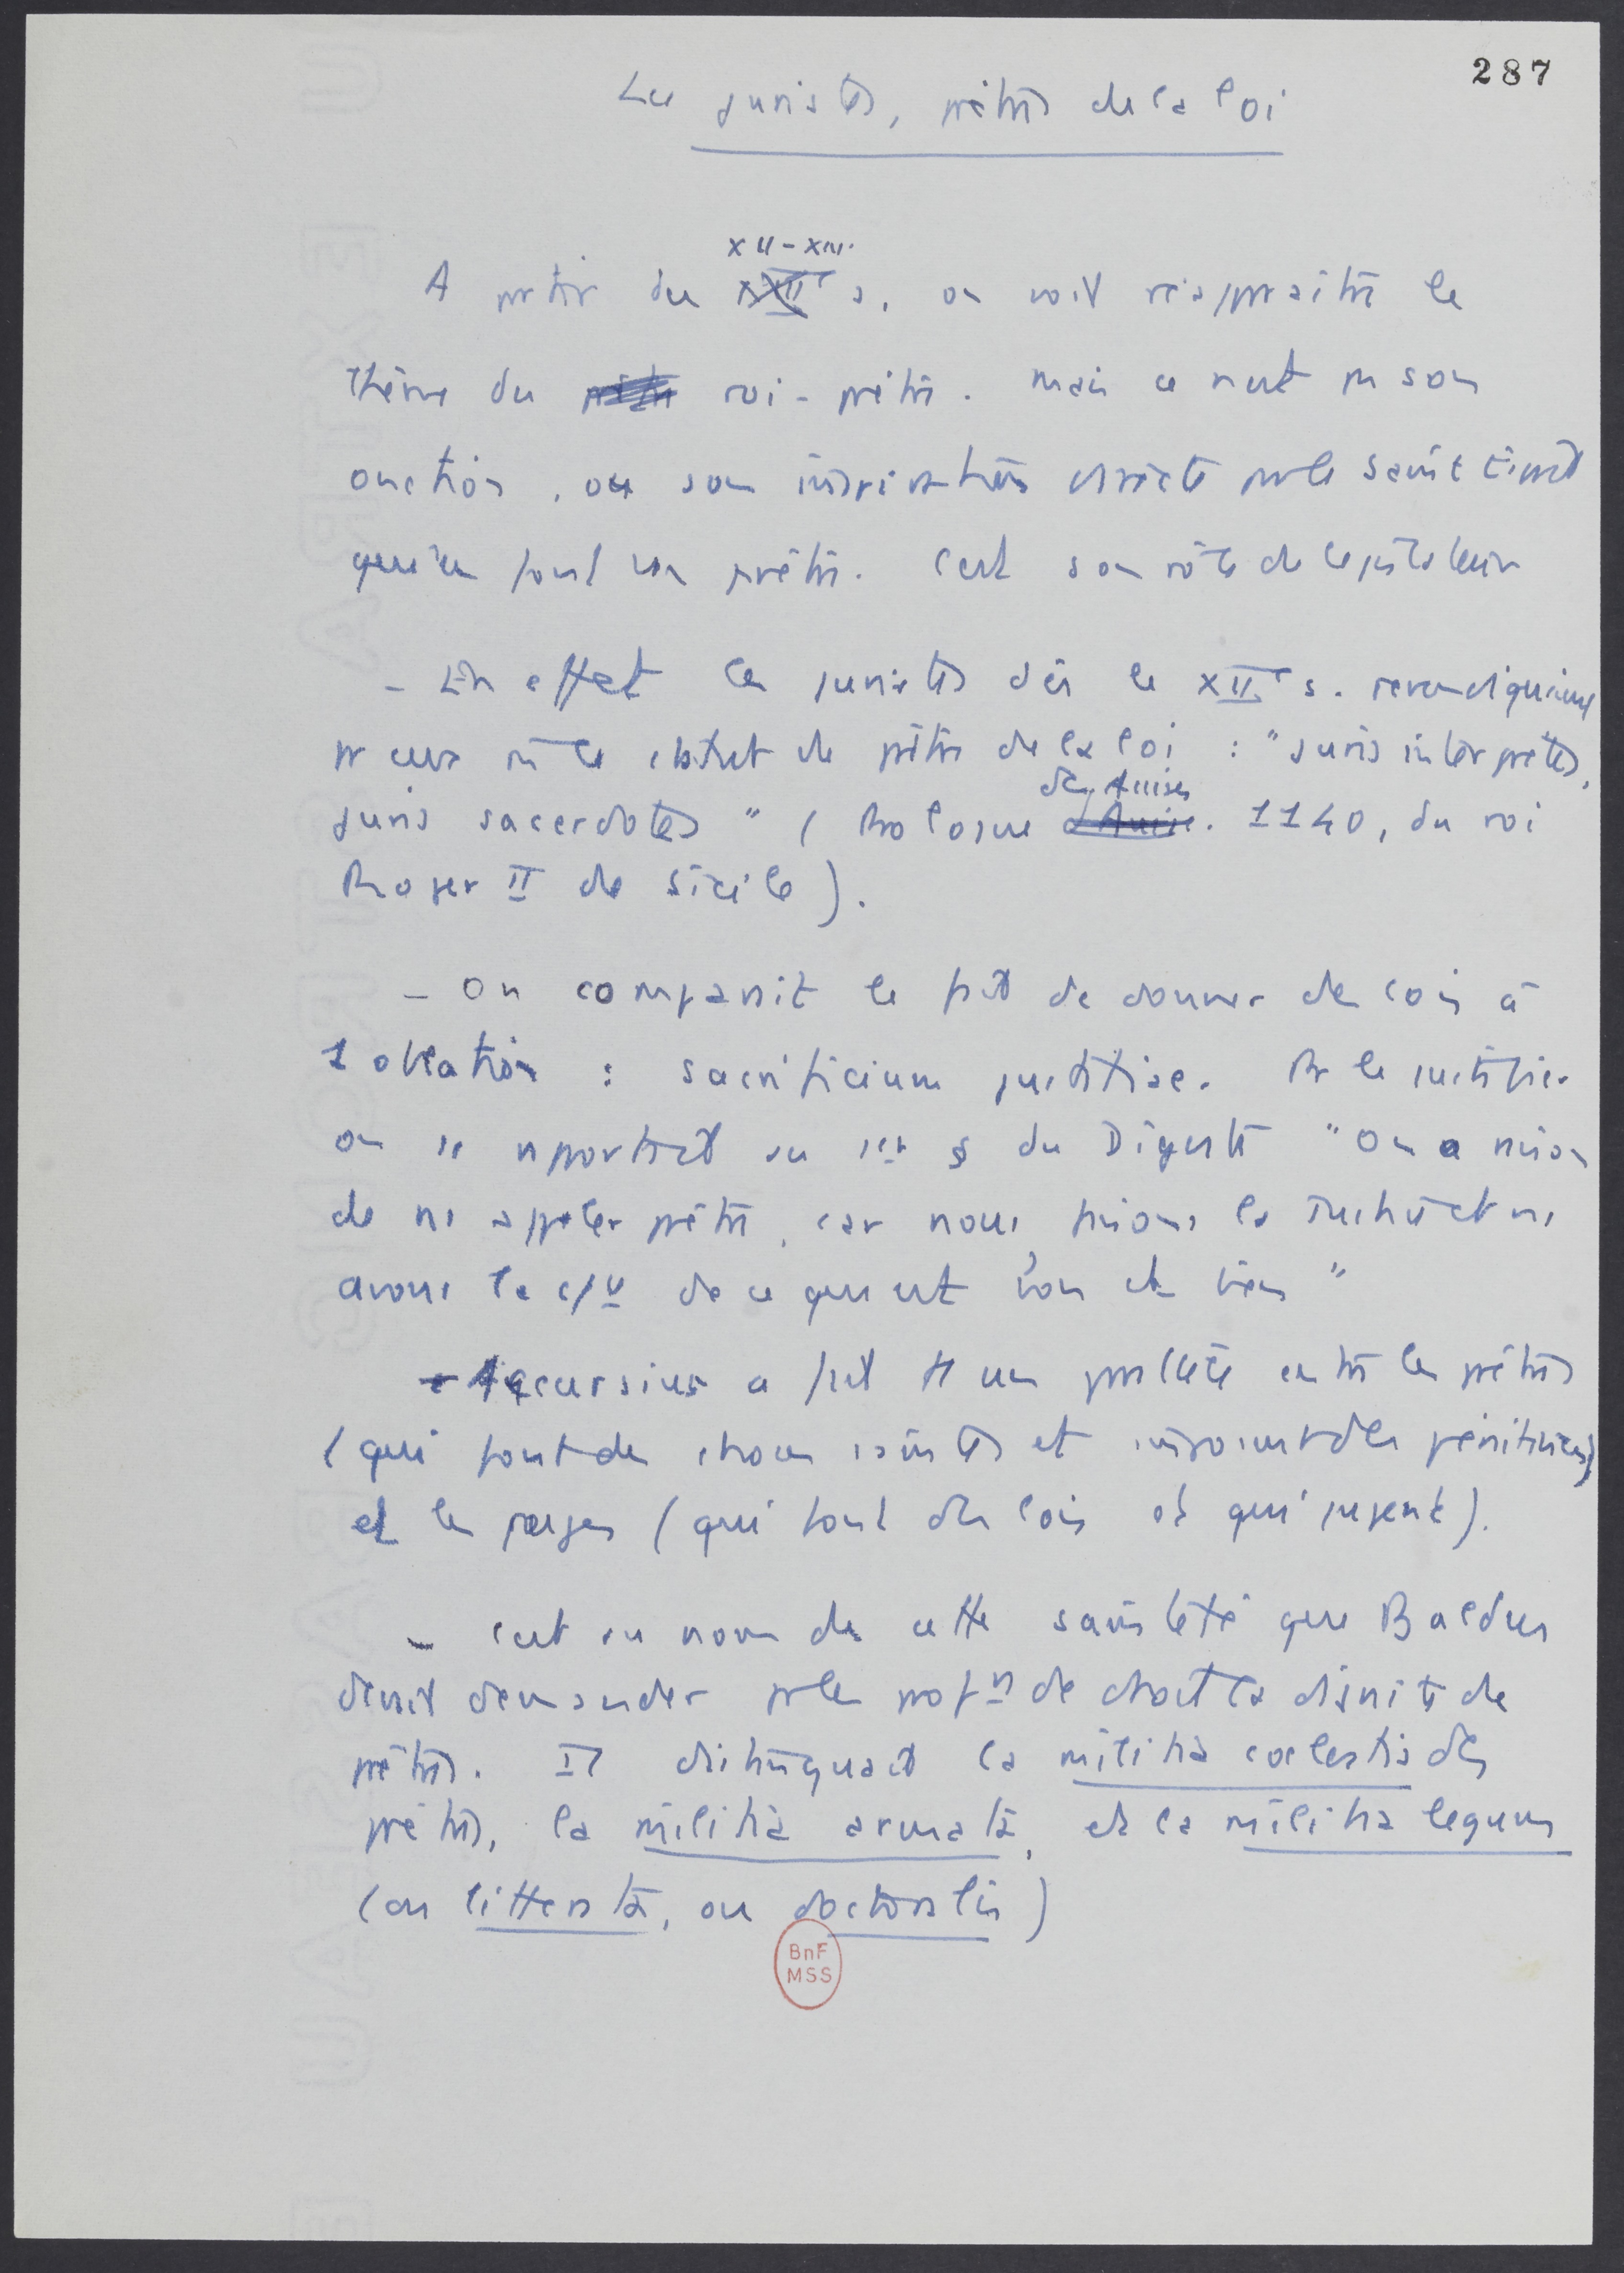 287
Les juristes, prêtres de la loi
XII-XIII
A partir du XIIe s, on voit réapparaître le
thème du roi-prêtre. Mais ce n'est pas son
onction, ou son inspiration directe par le Saint Esprit
qui en font un prêtre. C'est son rôle de législateur
- En effet les juristes dès le XIIe s. revendiquaient
pr eux m le statut de prêtre de la loi : "juris interpretes,
des Assises
juris sacerdotes" (Prologue 1140, du roi
Roger II de Sicile).
- On comparait le fait de donner des lois à
1 oblation : sacrificium justitiae. Pr le justifier
on se rapportait au 1er § du Digeste "On a raison
de ns appeler prêtre, car nous la justice et ns
avons la de ce qui est bon et bien"
- Accursius a fait tt un parallèle entre les prêtres
(qui font des choses saintes et imposent des pénitences)
et les juges (qui font des lois et qui jugent).
- C'est au nom de cette sainteté que Baldus
devait demander pr les profn de droit la dignité de
prêtres. Il distinguait la militia coelestia des
prêtres, la militia armata, et la militia legum
(ou litterata, ou doctoralis)
BnF
MSS